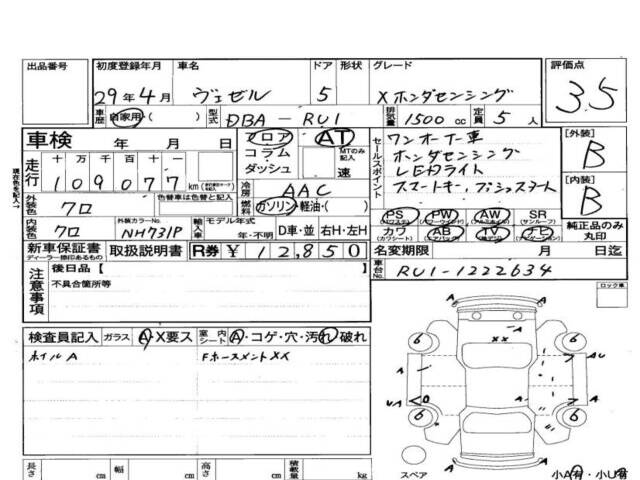 出品番号 初度登録年月 車名 ドア 形状 グレード 評価点
29年4月 ヴェゼル 5 Xホンダセンシング 3.5
車歴 自家用( ) 型式 DBA-RU1 排気量 1500cc 定員 5人
車検 年 月 日 フロア AT
コラム MTのみ記入
ダッシュ 速
セールスポイント ワンオーナー車
ホンダセンシング
LEDライト
スマートキー,プッシュスタート
[外装] B
[内装] B
走行 十万 万 千 百 十 一
109077 km
冷房 AAC
外装色 クロ 色替車は色替と記入 燃料 ガソリン・軽油・( )
PS PW AW SR
(パワステ) (パワーウィンド) (アルミホイル) (サンルーフ)
内装色 クロ 外装カラーNo. NH731P 輸入車 モデル年式 年・不明 D車・並 右H・左H
カワ AB TV ナビ
(カワシート) (エアバッグ) (テレビ) (ナビゲーション)
純正品のみ丸印
新車保証書 取扱説明書 R券 ¥12,850 名変期限 月 日迄
ディーラー捺印あるもの
車台No. RU1-1222634
注意事項 後日品[ ]
不具合箇所等
ロック車
検査員記入 ガラス A・X要ス 室内シート A・コゲ・穴・汚れ・破れ
ホイルA FホースメントXX
6 6
XX
A AU
UA A
6 6
A A
スペア 小A有・小U有
長さ cm 幅 cm 高さ cm 積載量 kg
現在色を記入→